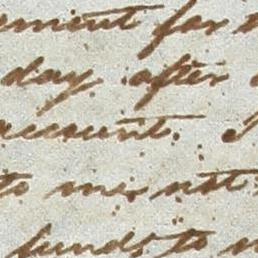 ement for
day after
account.
to me not
funds to